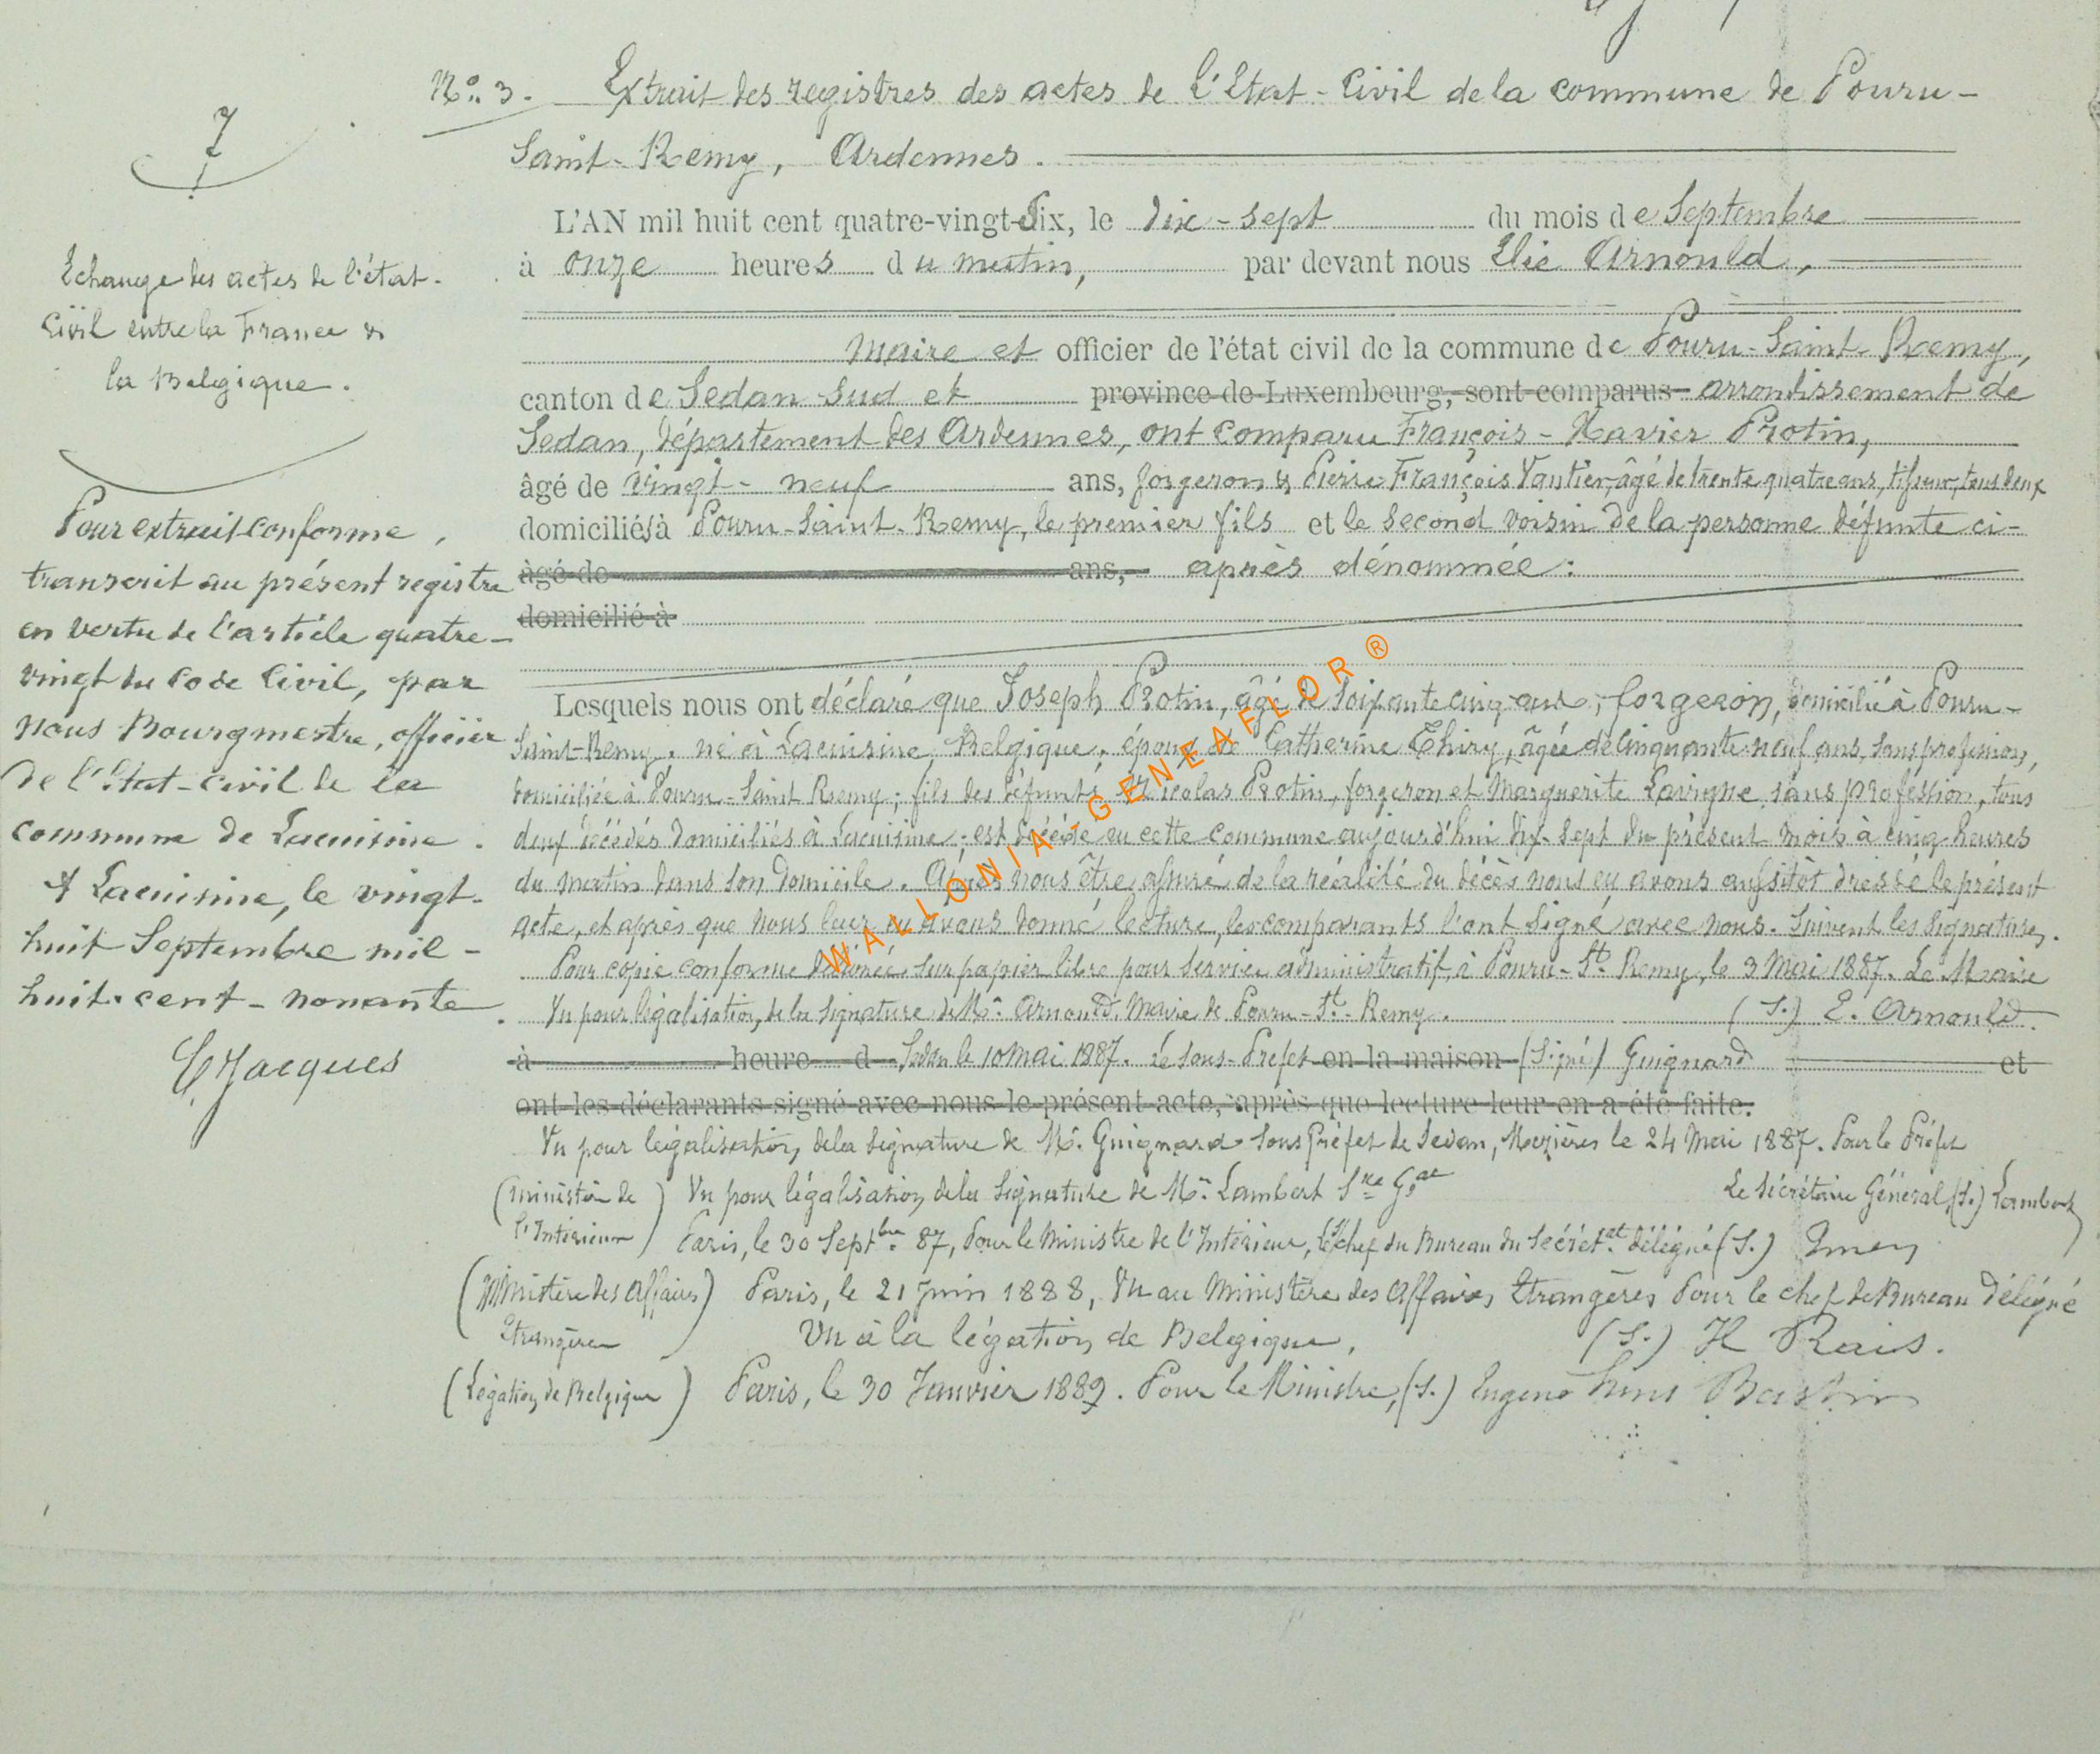 7
Echange des actes de l'état-
Civil entre la France &
la Belgique.
Pour extrait conforme,
transcrit au présent registre
en vertu de l'article quatre-
vingt du Code Civil, par
nous Bourgmestre, officier
de l'Etat-civil de la
commune de Lacuisine.
A Lacuisine, le vingt-
huit Septembre mil-
huit-cent-nonante.
Jacques
No. 3. Extrait des registres des actes de l'Etat-Civil de la commune de Pouru-
Saint-Remy, Ardennes.
L'AN mil huit cent quatre-vingt-six, le dix-sept du mois de Septembre
à onze heures du matin, par devant nous Elie Arnould,
maire et officier de l'état civil de la commune de Pouru-Saint-Remy,
canton de Sedan Sud et province de Luxembourg, sont comparus arrondissement de
Sedan, département des Ardennes, ont comparu François-Xavier Protin,
âgé de vingt-neuf ans, forgeron & Pierre François Vautier, âgé de trente quatre ans, tisseur, tous deux
domiciliés à Pouru-Saint-Remy, le premier fils et le second voisin de la personne défunte ci-
âgé de ans, après dénommée :
domicilié à
Lesquels nous ont déclaré que Joseph Protin, âgé de soixante cinq ans, forgeron, domicilié à Pouru-
Saint-Remy, né à Lacuisine, Belgique, époux de Catherine Thiry, âgée de cinquante neuf ans, sans profession,
domiciliée à Pouru-Saint Remy; fils des défunts Nicolas Protin, forgeron et Marguerite Lavigne, sans profession, tous
deux décédés domiciliés à Lacuisine; est décédé en cette commune aujourd'hui dix-sept du présent mois à cinq heures
du matin dans son domicile. Après nous être assuré de la réalité du décès nous en avons aussitôt dressé le présent
acte, et après que nous leur en avons donné lecture, les comparants l'ont signé avec nous. Suivent les signatures.
Pour copie conforme délivrée sur papier libre pour service administratif, à Pouru-St. Remy, le 3 Mai 1887. Le Maire
Vu pour légalisation, de la signature de Mr. Arnould, Maire de Pouru-St.-Remy. (S.) E. Arnould.
à heure d Sedan le 10 Mai 1887. Le Sous-Prefet en la maison (Signé) Guignard et
ont les déclarants signé avec nous le présent acte, après que lecture leur en a été faite.
Vu pour légalisation, de la signature de Mr. Guignard Sous Préfet de Sedan, Mezières le 24 Mai 1887. Pour le Préfet
(Ministère de) Vu pour légalisation de la signature de Mr. Lambert Sre Gal Le Sécrétaire Général, (S.) Lambert
l'Intérieur Paris, le 30 Septbre 87, Pour le Ministre de l'Intérieur, Le chef du Bureau du Sécrétat. délégué (S.)
(Ministère des Affaires) Paris, le 21 Juin 1888, Vu au Ministère des Affaires Etrangères Pour le chef de Bureau Délégué
Etrangères Vu à la légation de Belgique, (S.) H Rais.
(Légation de Belgique) Paris, le 30 Janvier 1889. Pour le Ministre, (S.) Eugène Bastin
WALLONIA-GENEAFLOR ®